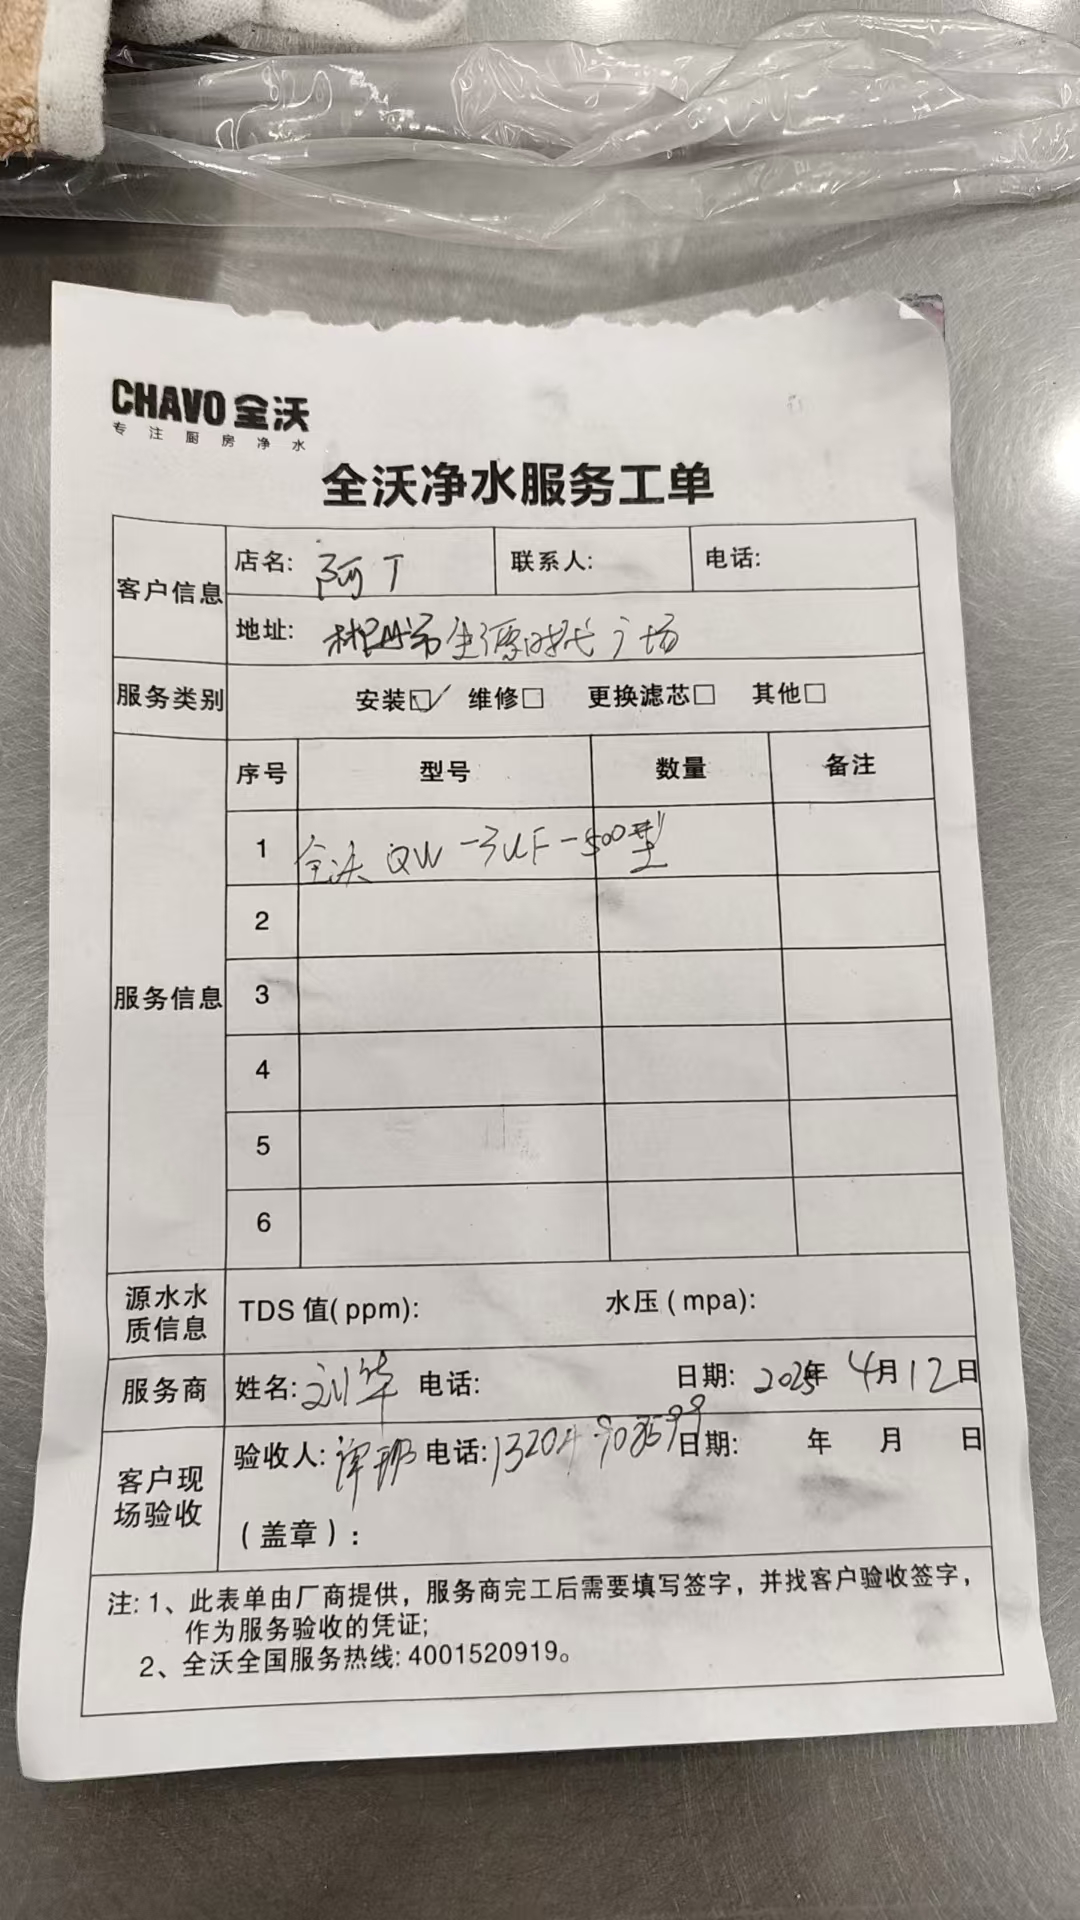 CHAVO 全沃
专注厨房净水
全沃净水服务工单
客户信息
店名: 阿丁
联系人:
电话:
地址: 生源时代广场
服务类别
安装☑ 维修□ 更换滤芯□ 其他□
服务信息
序号 型号 数量 备注
1 全沃 QW-3UF-500型
2
3
4
5
6
源水水质信息
TDS 值(ppm): 水压(mpa):
服务商
姓名: 刘华 电话: 日期: 2025年 4月12日
客户现场验收
验收人: 谭 电话: 日期: 年 月 日
(盖章):
注: 1、此表单由厂商提供，服务商完工后需要填写签字，并找客户验收签字，
作为服务验收的凭证;
2、全沃全国服务热线: 4001520919。